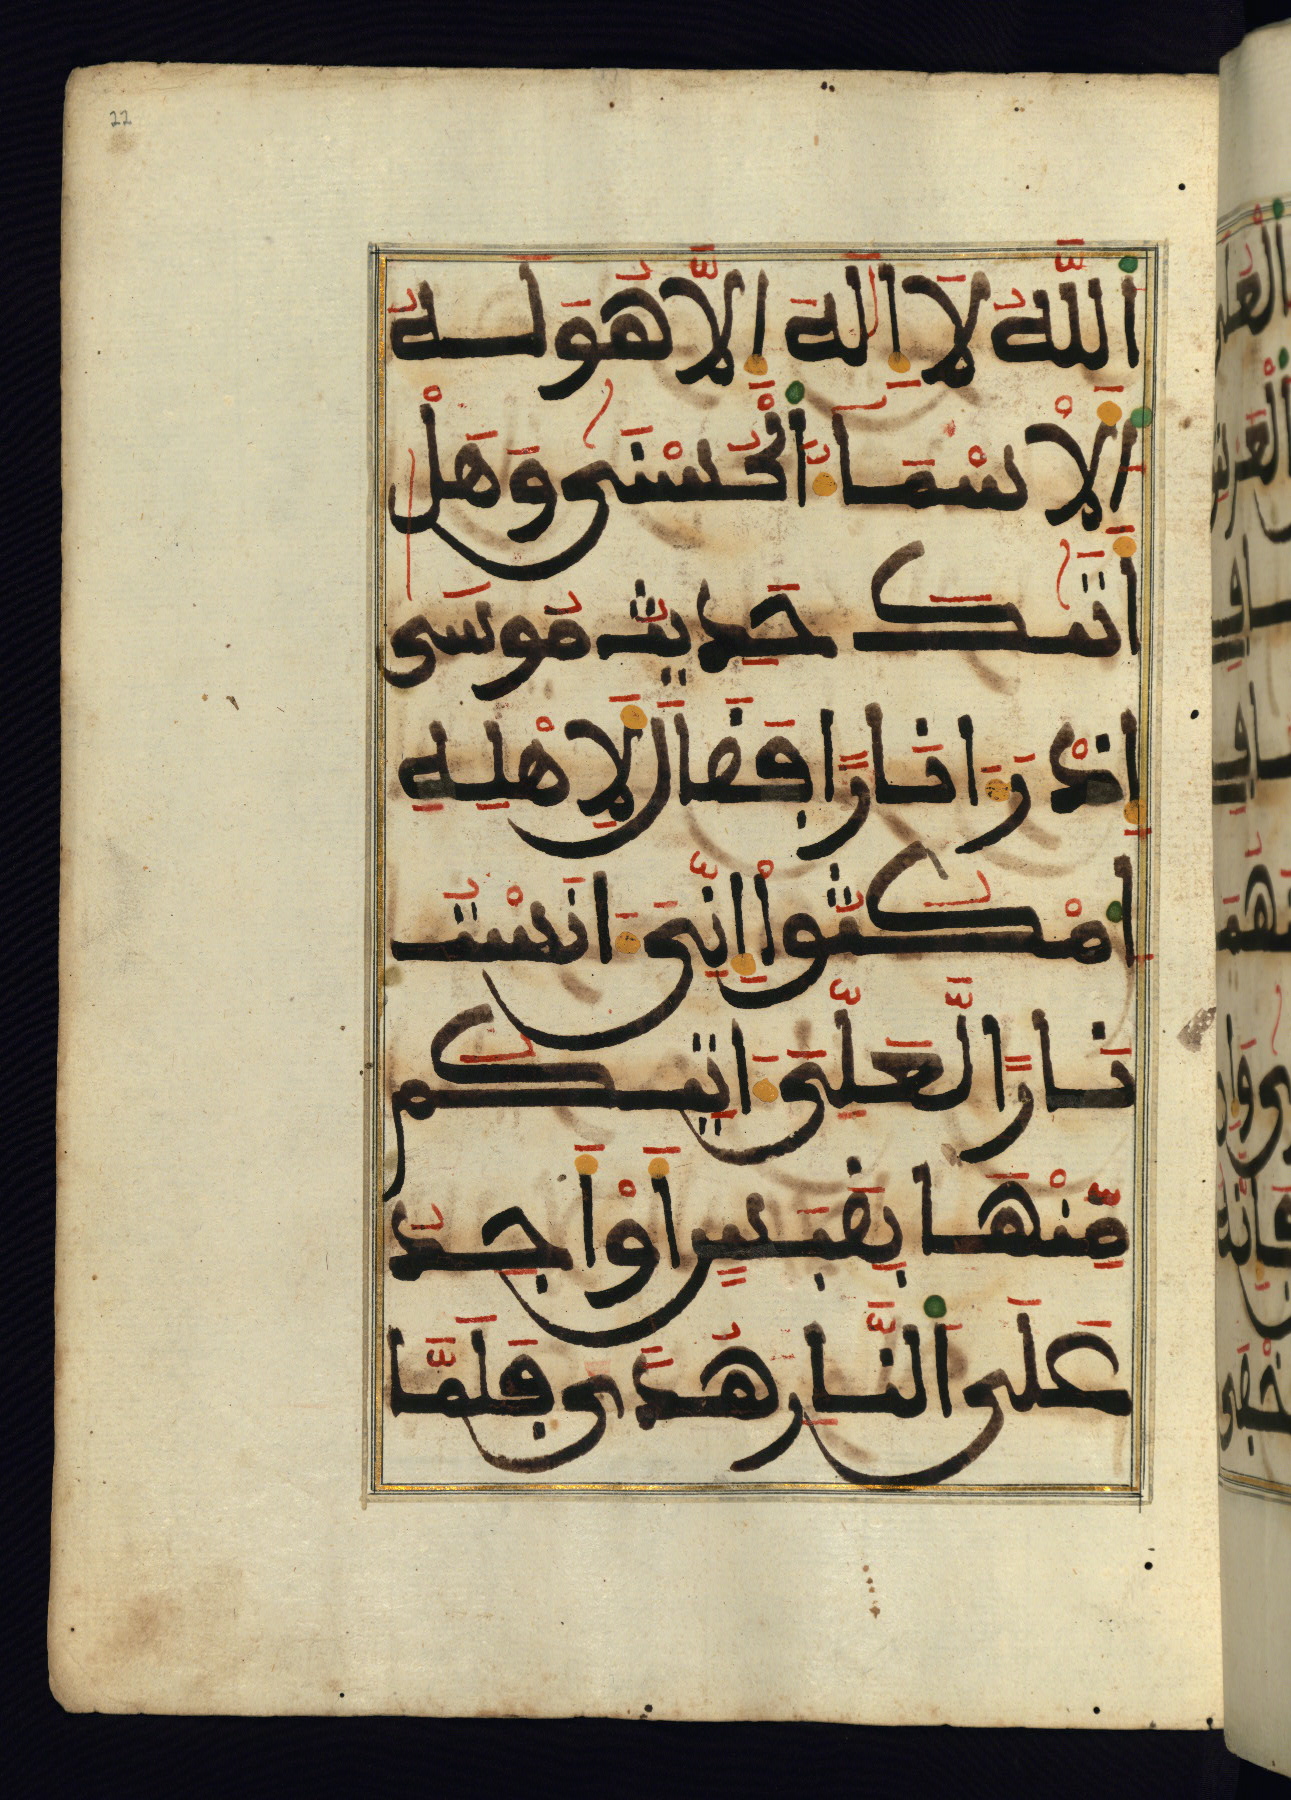 22
اَللَّهُ لَا إِلَٰهَ إِلَّا هُوَ لَهُ
اَلَاسْمَآءُ اَلْحُسْنَىٰ وَهَلْ
أَتَىٰكَ حَدِيثُ مُوسَىٰ
إِذْ رَءَا نَارًا فَقَالَ لَأِهْلِهِ
اِمْكُثُوا إِنِّيَ ءَانَسْتُ
نَارًا لَّعَلِّيَ ءَاتِيكُم
مِّنْهَا بِقَبَسٍ أَوَ اَجِدُ
عَلَى اَلنَّارِ هُدًى فَلَمَّا